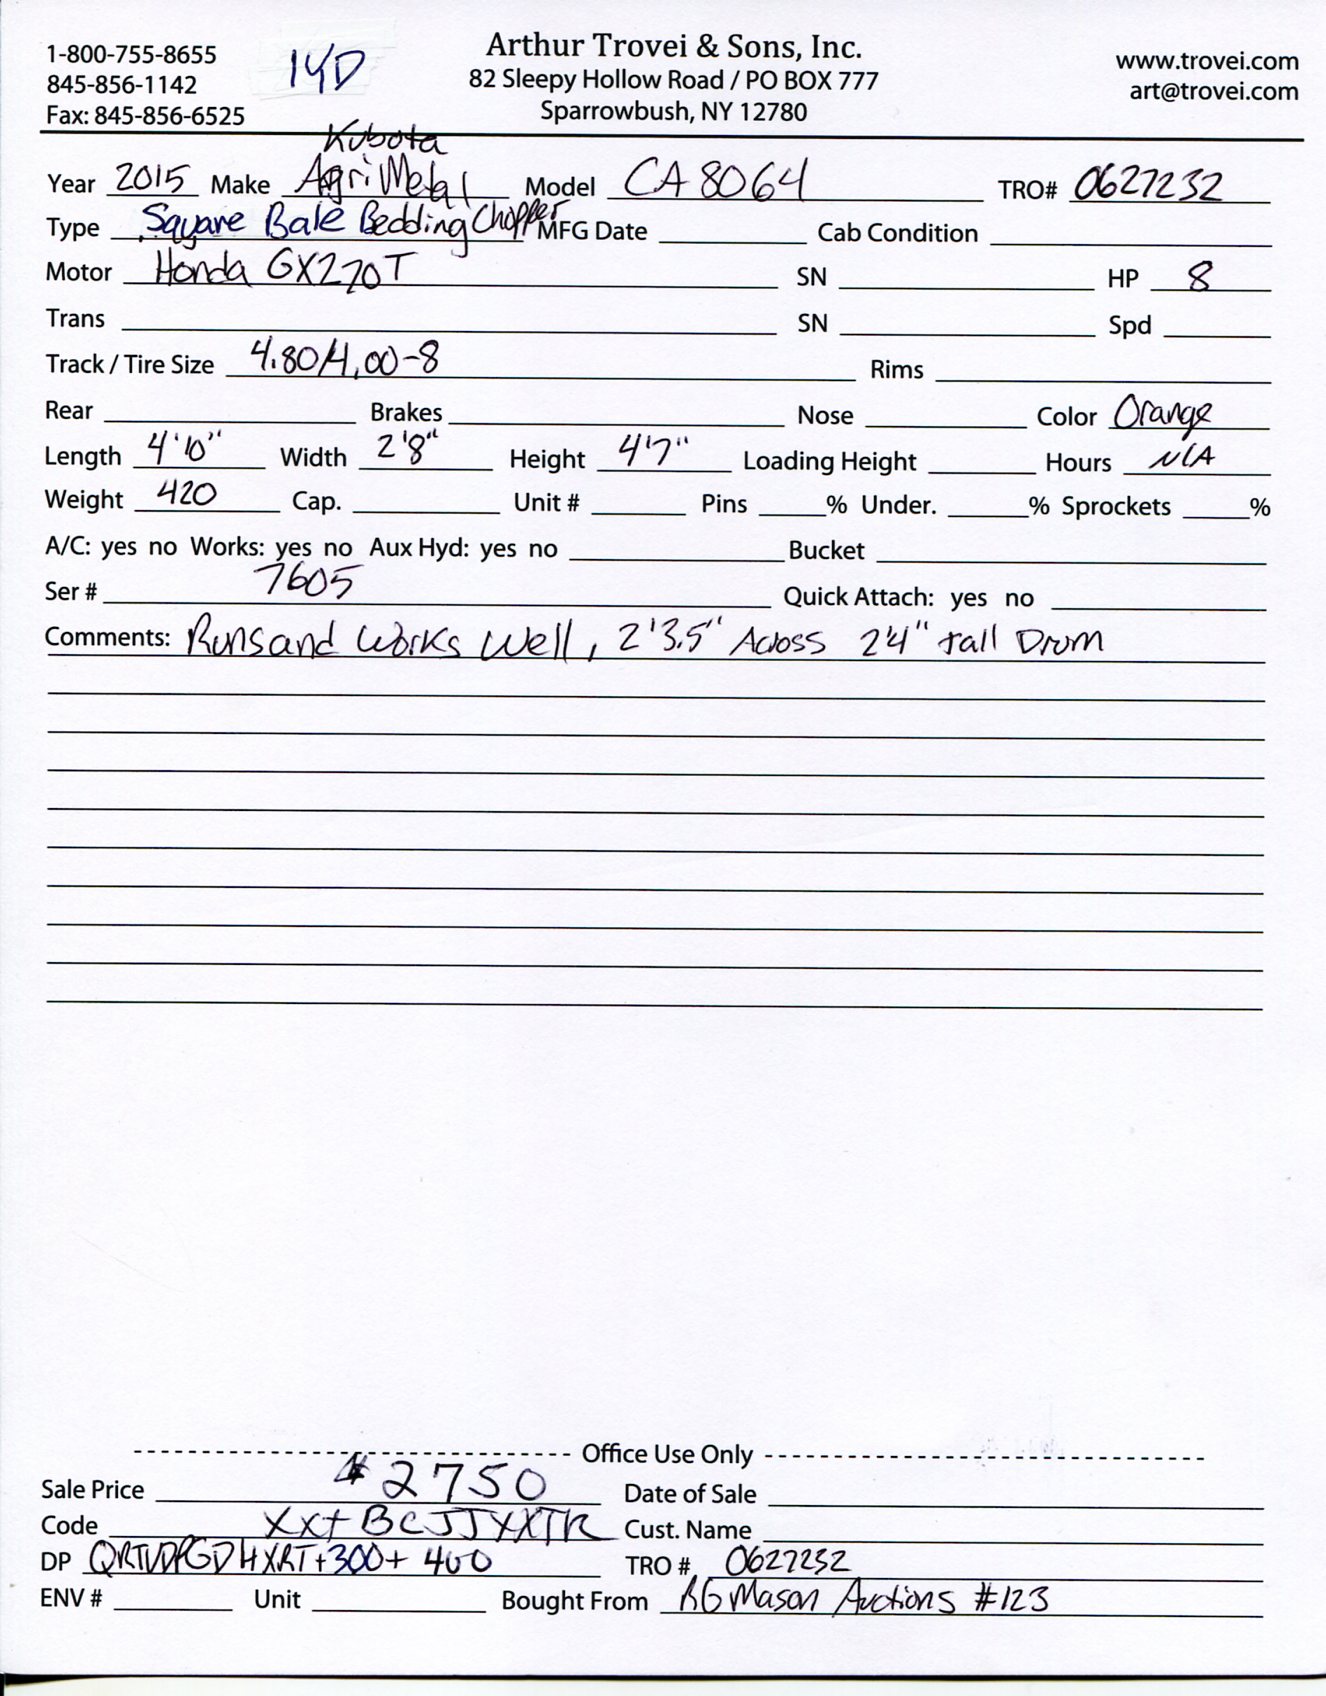 1-800-755-8655
845-856-1142
Fax: 845-856-6525
14D
Arthur Trovei & Sons, Inc.
82 Sleepy Hollow Road / PO BOX 777
Sparrowbush, NY 12780
www.trovei.com
art@trovei.com
Kubota
Year 2015 Make AgriMetal Model CA8064 TRO# 0627232
Type Square Bale Bedding Chopper MFG Date Cab Condition
Motor Honda GX270T SN HP 8
Trans SN Spd
Track / Tire Size 4.80/4.00-8 Rims
Rear Brakes Nose Color Orange
Length 4'10" Width 2'8" Height 4'7" Loading Height Hours N/A
Weight 420 Cap. Unit # Pins % Under. % Sprockets %
A/C: yes no Works: yes no Aux Hyd: yes no Bucket
Ser # 7605 Quick Attach: yes no
Comments: Runs and Works Well, 2'3.5" Across 2'4" tall Drum
Office Use Only
Sale Price $2750 Date of Sale
Code Cust. Name
DP +300+ 400 TRO # 0627232
ENV # Unit Bought From RG Mason Auctions #123